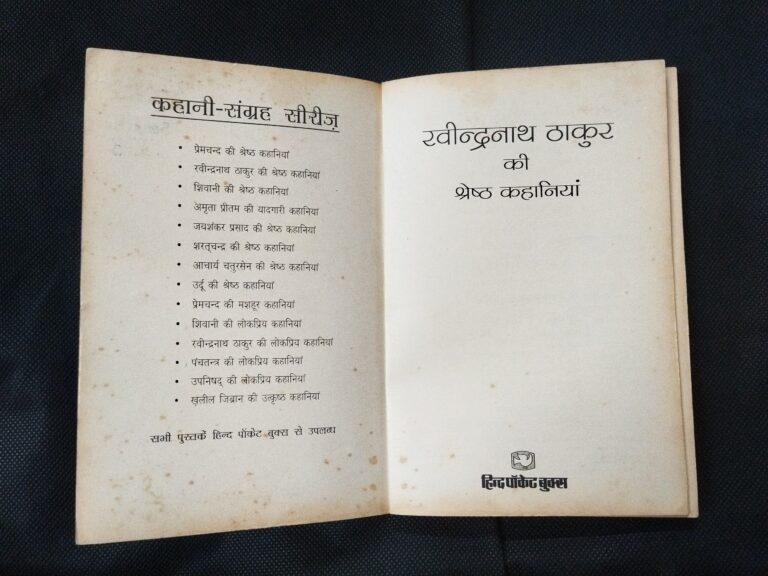 कहानी-संग्रह सीरीज़
• प्रेमचन्द की श्रेष्ठ कहानियां
• रवीन्द्रनाथ ठाकुर की श्रेष्ठ कहानियां
• शिवानी की श्रेष्ठ कहानियां
• अमृता प्रीतम की यादगारी कहानियां
• जयशंकर प्रसाद की श्रेष्ठ कहानियां
• शरत्चन्द्र की श्रेष्ठ कहानियां
• आचार्य चतुरसेन की श्रेष्ठ कहानियां
• उर्दू की श्रेष्ठ कहानियां
• प्रेमचन्द की मशहूर कहानियां
• शिवानी की लोकप्रिय कहानियां
• रवीन्द्रनाथ ठाकुर की लोकप्रिय कहानियां
• पंचतन्त्र की लोकप्रिय कहानियां
• उपनिषद् की लोकप्रिय कहानियां
• ख़लील जिब्रान की उत्कृष्ठ कहानियां
सभी पुस्तकें हिन्द पॉकेट बुक्स से उपलब्ध
रवीन्द्रनाथ ठाकुर
की
श्रेष्ठ कहानियां
हिन्द पॉकेट बुक्स